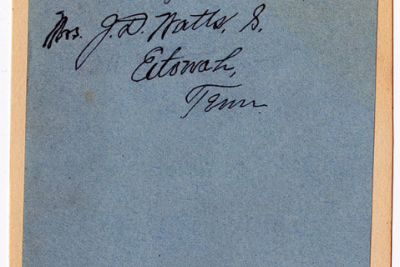 Mrs. J. D. Watts, S.
Etowah,
Tenn